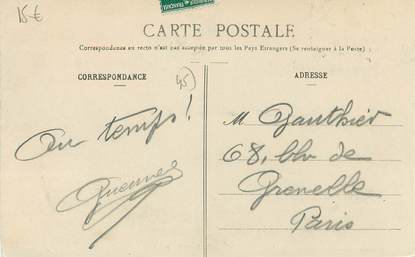 15€
CARTE POSTALE
Correspondance au recto n'est pas acceptée par tous les Pays Etrangers (Se renseigner à la Poste)
CORRESPONDANCE
45
ADRESSE
Au temps!
M Gauthier
68, blv de
Grenelle
Paris